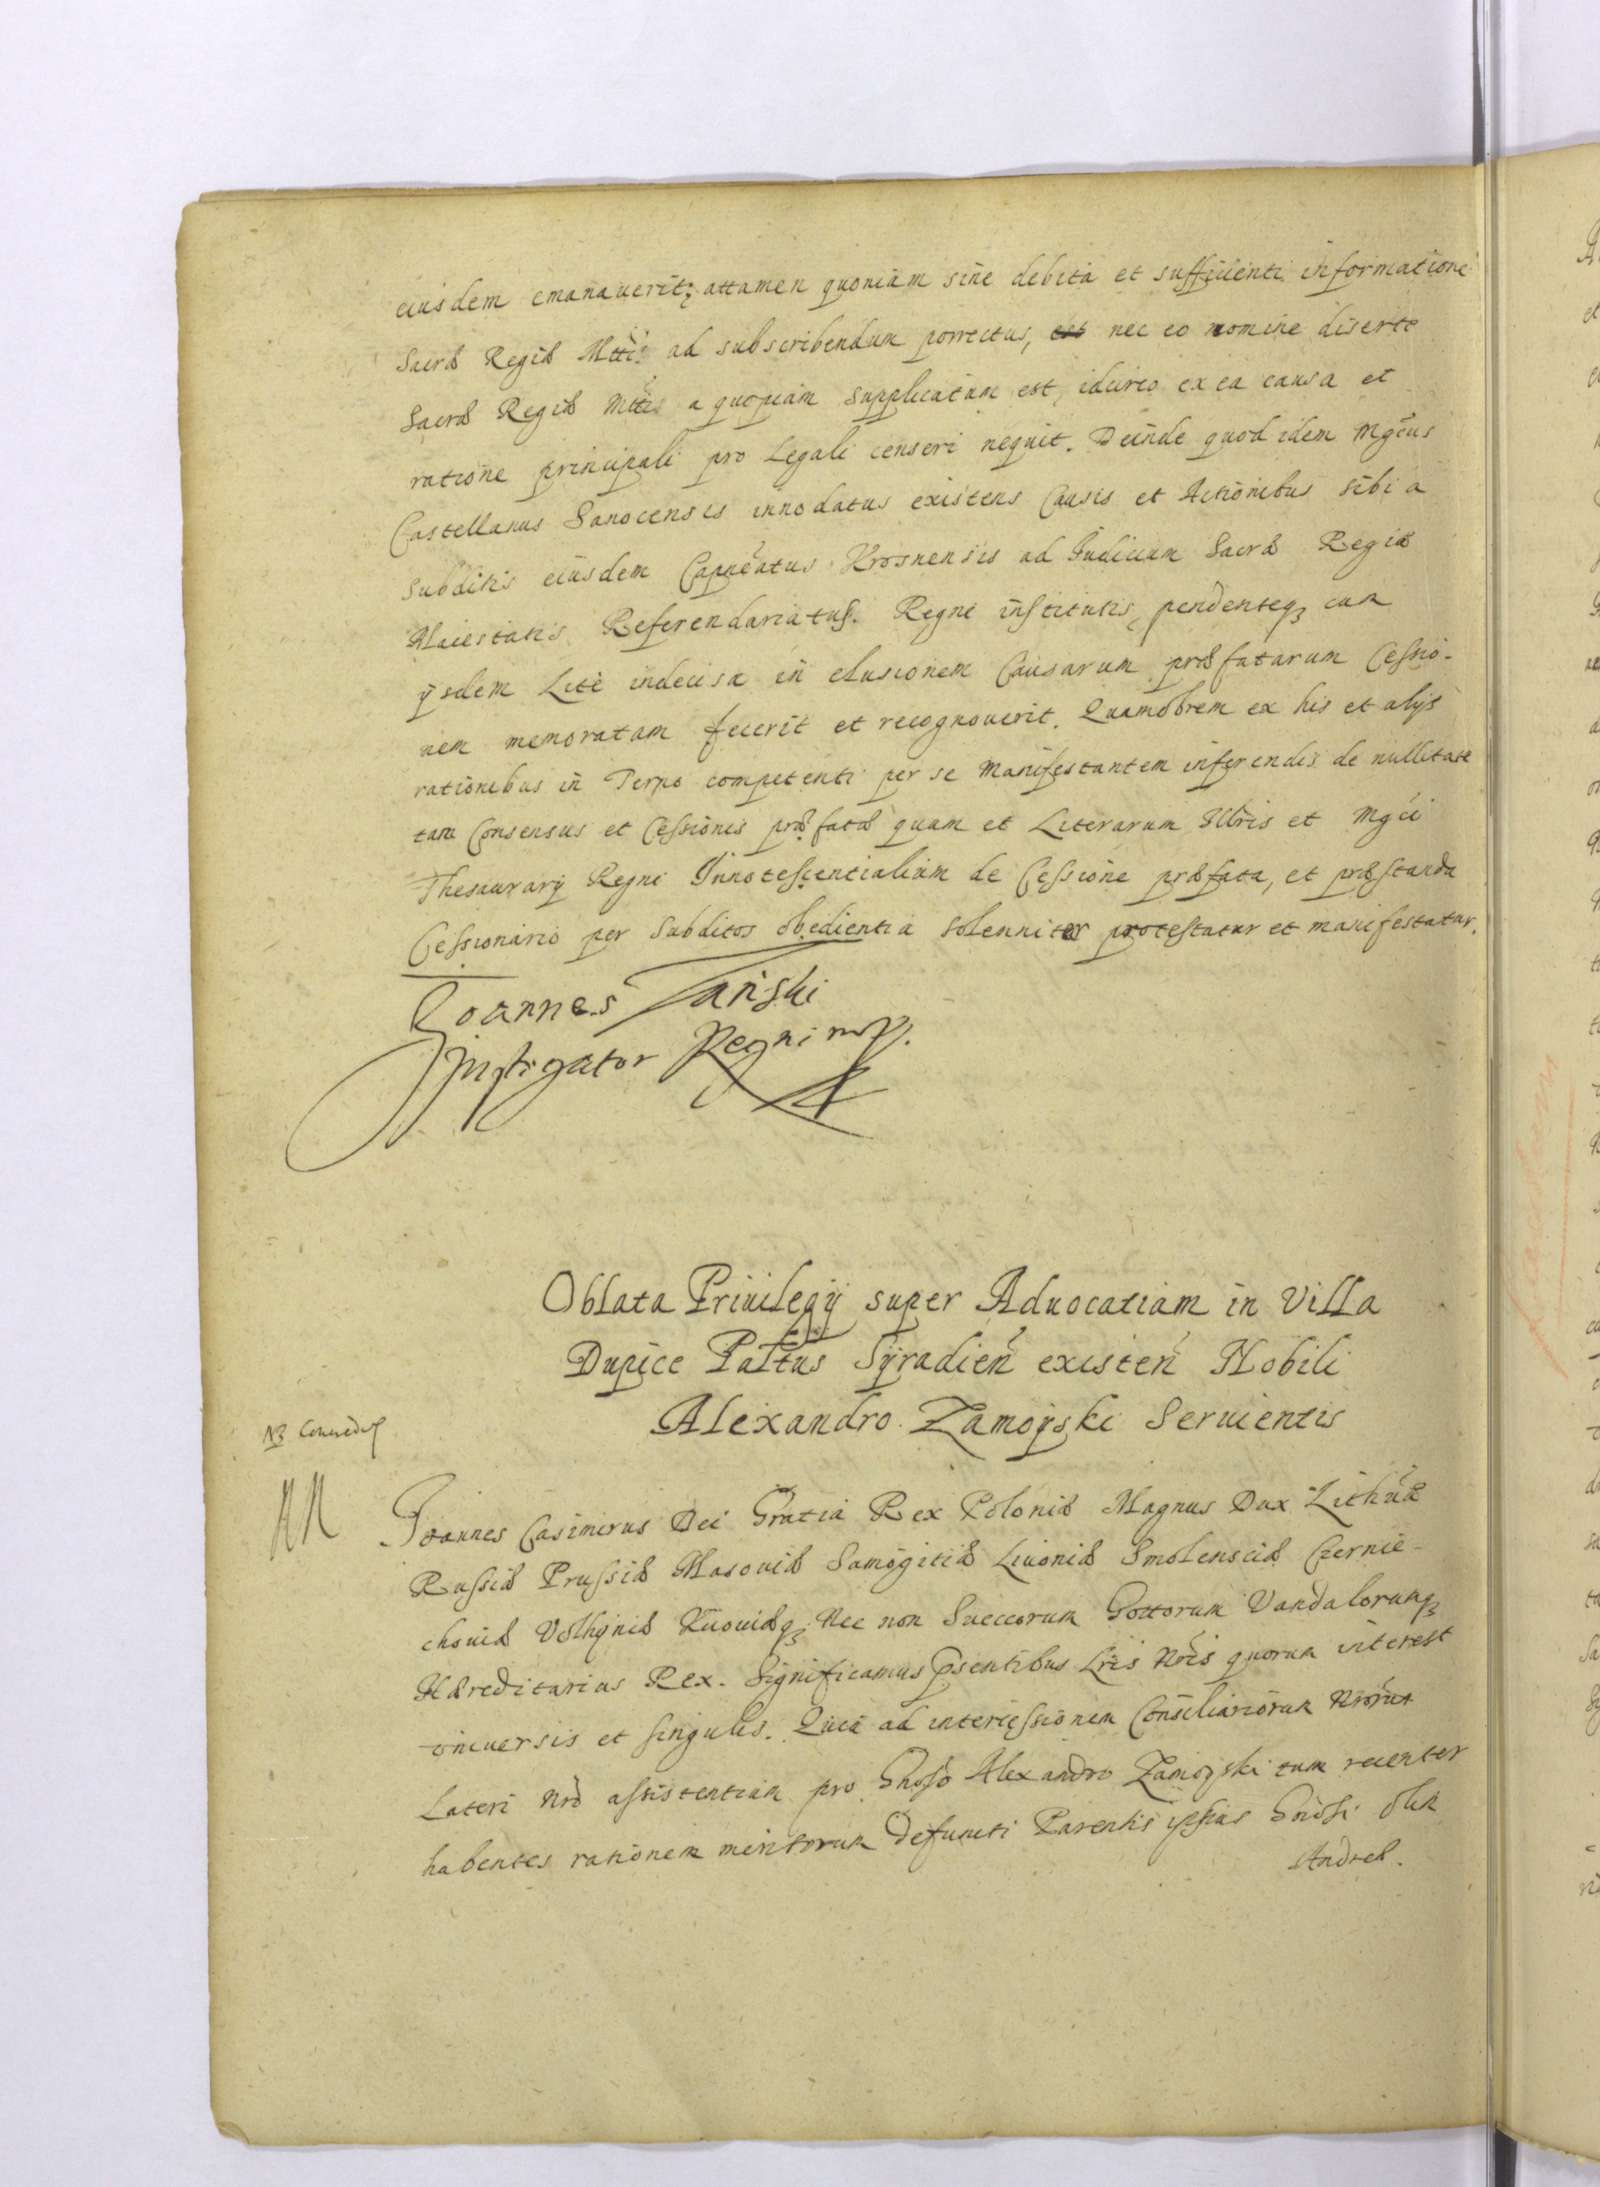 eiusdem emanauerit; attamen quoniam sine debita et sufficienti informatione
Sacræ Regiæ Mttis ad subscribendum porrectus, est nec eo nomine diserte
Sacræ Regiæ Mttis a quopiam supplicatum est, idcirco ex ea causa et
ratione principali pro Legali censeri nequit. Deinde quod idem Mgcus
Castellanus Sanocensis innodatus existens Causis et Actionibus sibi a
Subditis eiusdem Capneatus Krosnensis ad Iudicium Sacræ Regiæ
Maiestatis Referendariatus Regni institutis, pendenteq3 cum
ysdem Lite indecisa in elusionem Causarum præfatarum Cessio-
nem memoratam fecerit et recognouerit. Quamobrem ex his et alijs
rationibus in Termo competenti per se Manifestantem inferendis de nullitate
tam Consensus et Cessionis præfatæ quam et Literarum Illris et Mgci
Thesaurarij Regni Innotescentialium de Cessione præfata, et præstanda
Cessionario per Subditos obedientia solenniter protestatur et manifestatur.
Joannes Tański
Instigator Regni mp.
Oblata Priuilegij super Aduocatiam in Villa
Dupice Paltus Syradien existen Nobili
Alexandro Zamoyski Seruientis
Joannes Casimirus Dei Gratia Rex Poloniæ Magnus Dux Lithuæ
Russiæ Prussiæ Masouiæ Samogitiæ Liuoniæ Smolensciæ Czernie-
chouiæ Volhyniæ Kiiouiæq3 Nec non Sueccorum Gottorum Vandalorumq3
Hæreditarius Rex. Significamus psentibus Lris Nris quorum interest
vniuersis et singulis. Quia ad intercessionem Consiliariorum Nrorum
Lateri Nro assistentium pro Gnoso Alexandro Zamoyski tum recenter
habentes rationem meritorum defuncti Parentis ipsius Gnosi olim
Andreæ.